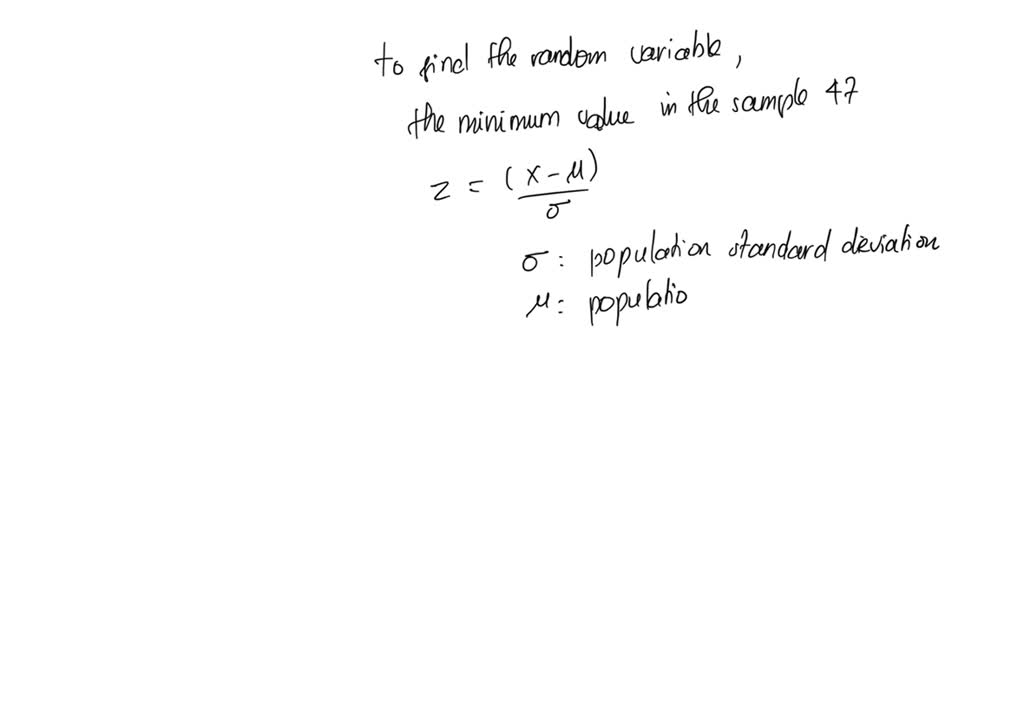 to find the random variable,
the minimum value in the sample 47
z = (x - μ)
σ
σ: population standard deviation
μ: populatio